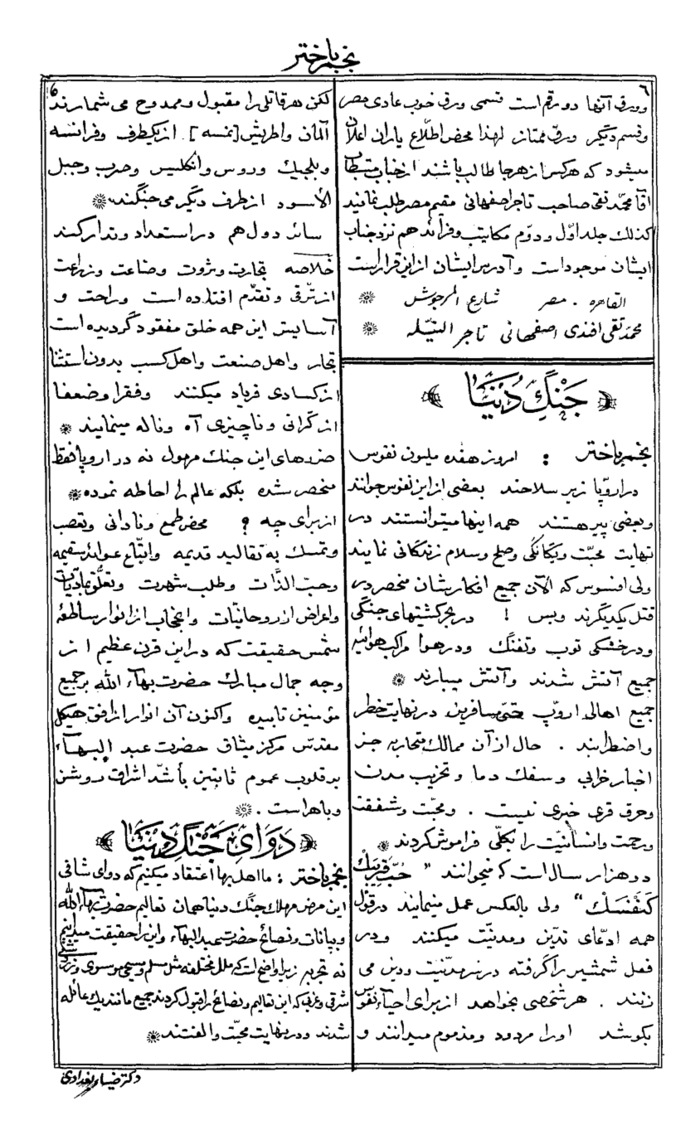 نجم باختر
٦
وورق آنها دو رقم است قسمی ورق خوب عادی مصر
وقسم دیگر ورق ممتاز لهذا محض اطلاع یاران اعلان
میشود که هرکس از هرجا طالب باشند
آقا محمّد تقی صاحب تاجر اصفهانی مقیم مصر طلب نمایند
کذلک جلد اوّل و دوّم مکاتیب وفرائد هم نزد جناب
ایشان موجود است و آدرس ایشان از این قرار است
القاهره . مصر شارع المرجوش
محمّد تقی افندی اصفهانی تاجر
جنگ دنیا
نجم باختر : امروز هفده ملیون نفوس
در اروپا زیر سلاحند بعضی از این نفوس جوانند
وبعضی پیر هستند همه اینها میتوانستند در
نهایت محبّت ویگانگی وصلح وسلام زندگانی نمایند
ولی افسوس که الآن جمیع افکارشان منحصر در
قتل یکدیگرند وبس ! در بحر کشتیهای جنگی
ودر خشکی توپ وتفنگ ودر هوا مراکب هوائیه
جمیع آتش شدند وآتش میبارند
جمیع اهالی اروپ حتی مسافرین در نهایت خطر
واضطرابند . حال از آن ممالک متحاربه جز
اخبار خرابی وسفک دما وتخریب مدن
وحرق قری خبری نیست . ومحبّت وشفقت
ورحمت وانسانیّت را بکلّی فراموش کردند
دو هزار سال است که میخوانند " حُبّ قریبک
کنفسک " ولی بالعکس عمل مینمایند در قول
همه ادّعای تدیّن ومدنیّت میکنند ودر
فعل شمشیر را گرفته در سر مدنیّت ودین می
زنند . هر شخصی بخواهد از برای احیاء نفوس
بکوشد اورا مردود ومذموم میدانند و
لکن هر قاتلی را مقبول وممدوح می شمارند
آلمان واطریش [نمسه] از یکطرف وفرانسه
وبلجیک وروس وانگلیس وصرب وجبل
الأسود از طرف دیگر می جنگند
سائر دول هم در استعداد وتدارکند
خلاصه تجارت وثروت وصناعت وزراعت
از ترقّی وتقدّم افتاده است وراحت و
آسایش این همه خلق مفقود گردیده است
تجار واهل صنعت واهل کسب بدون استثنا
از کسادی فریاد میکنند وفقرا وضعفا
از گرانی وناچیزی آه وناله مینمایند
ضررهای این جنک مهول نه در اروپا فقط
منحصر شده بلکه عالم را احاطه نموده
از برای چه ؟ محض طمع ونادانی وتعصب
وتمسک به تقالید قدیمه واتّباع عوائد سقیمه
وحبّ الذّات وطلب شهرت وتعلّق بمادّیات
واعراض از روحانیّات واحتجاب از انوار ساطعهٔ
شمس حقیقت که در این قرن عظیم از
وجه جمال مبارک حضرت بهآء الله بر جمیع
مؤمنین تابیده واکنون آن انوار از افق هیکل
مقدّس مرکز میثاق حضرت عبد البهآء
بر قلوب عموم ثابتین باشدّ اشراق روشن
وباهر است .
دوای جنگ دنیا
نجم باختر : ما اهل بها اعتقاد میکنیم که دوای شافی
این مرض مهلک جنگ دنیا همان تعالیم حضرت بهآء الله
وبیانات ونصائح حضرت عبد البهآء واین را حقیقت میدانیم
نه تجربه زیرا واضح است که ملل مختلفه مثل مسلم ومسیحی وموسوی وزردشتی
شرقی وغربی که این تعالیم ونصائح را قبول کردند جمیع مانند یک عائله
شدند ودر نهایت محبّت والفتند
دکتر ضیاء بغدادی